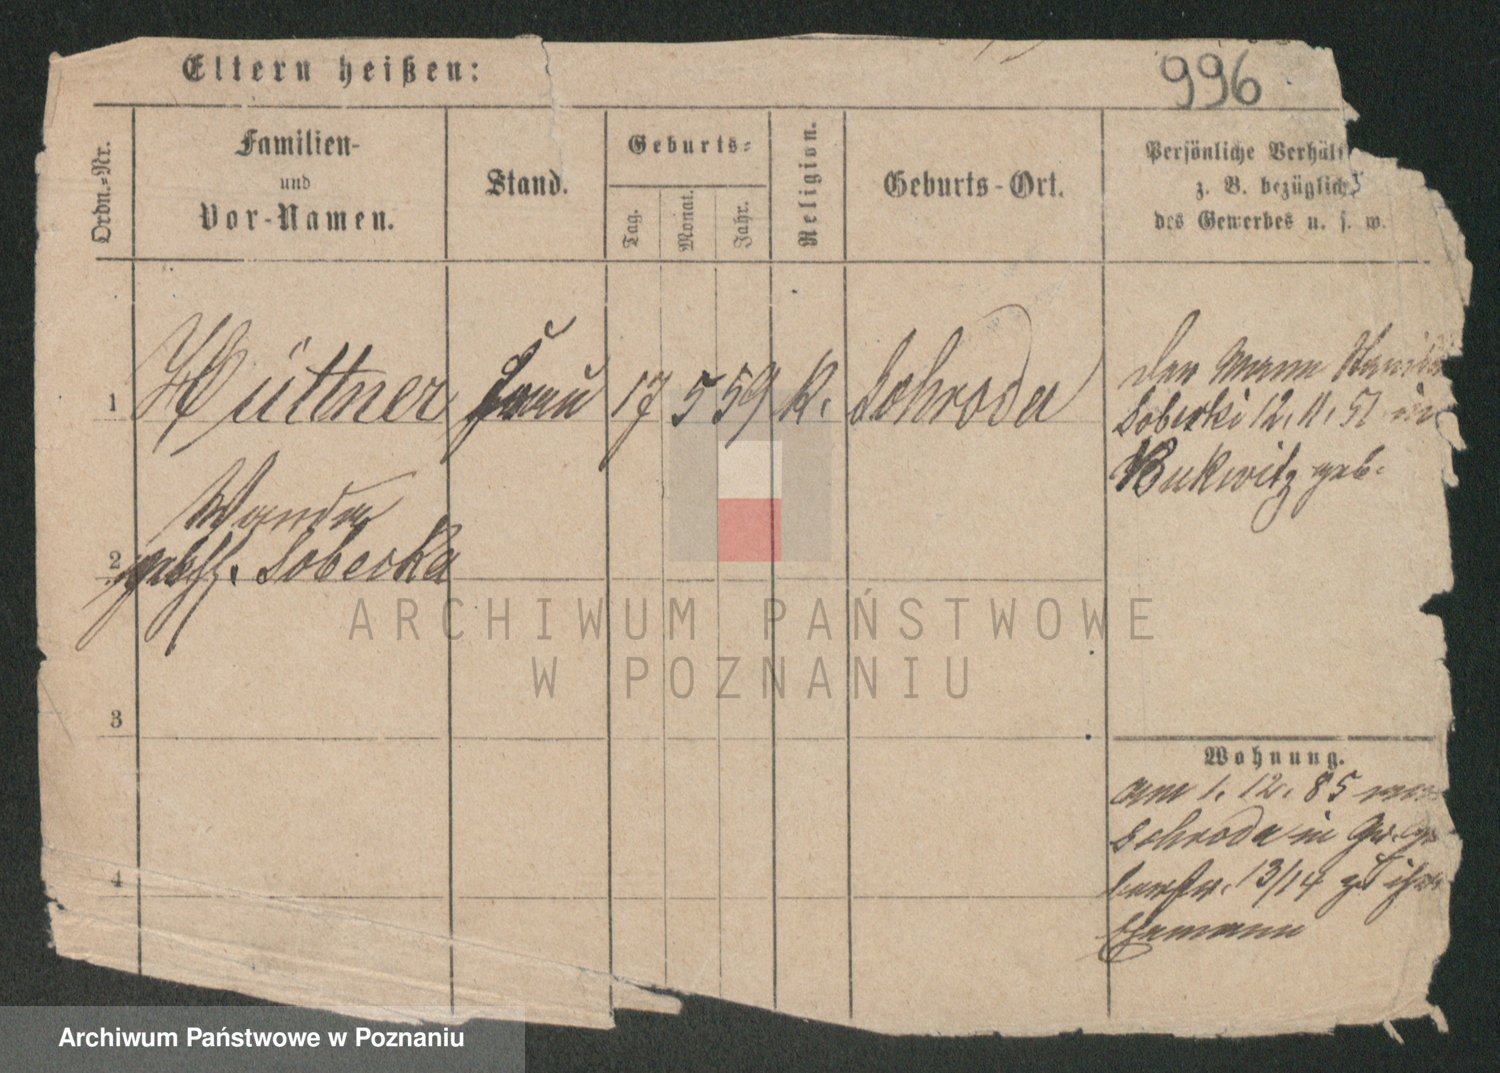 996
Eltern heißen:
Ordn.-Nr.
Familien-
und
Vor-Namen.
Stand.
Geburts-
Tag.
Monat.
Jahr.
Religion.
Geburts-Ort.
Persönliche Verhält
z. B. bezüglich
des Gewerbes u. s. w.
1
Hüttner
Frau
17
5
59
K.
Schroda
Wanda
2
Sobecka
3
4
Der Mann
Sobecki 12. 11. 51 in
Bukwitz geb.
Wohnung.
am 1. 12. 85 von
Schroda in
13/14 zu ihrem
Ehemann
ARCHIWUM PAŃSTWOWE
W POZNANIU
Archiwum Państwowe w Poznaniu